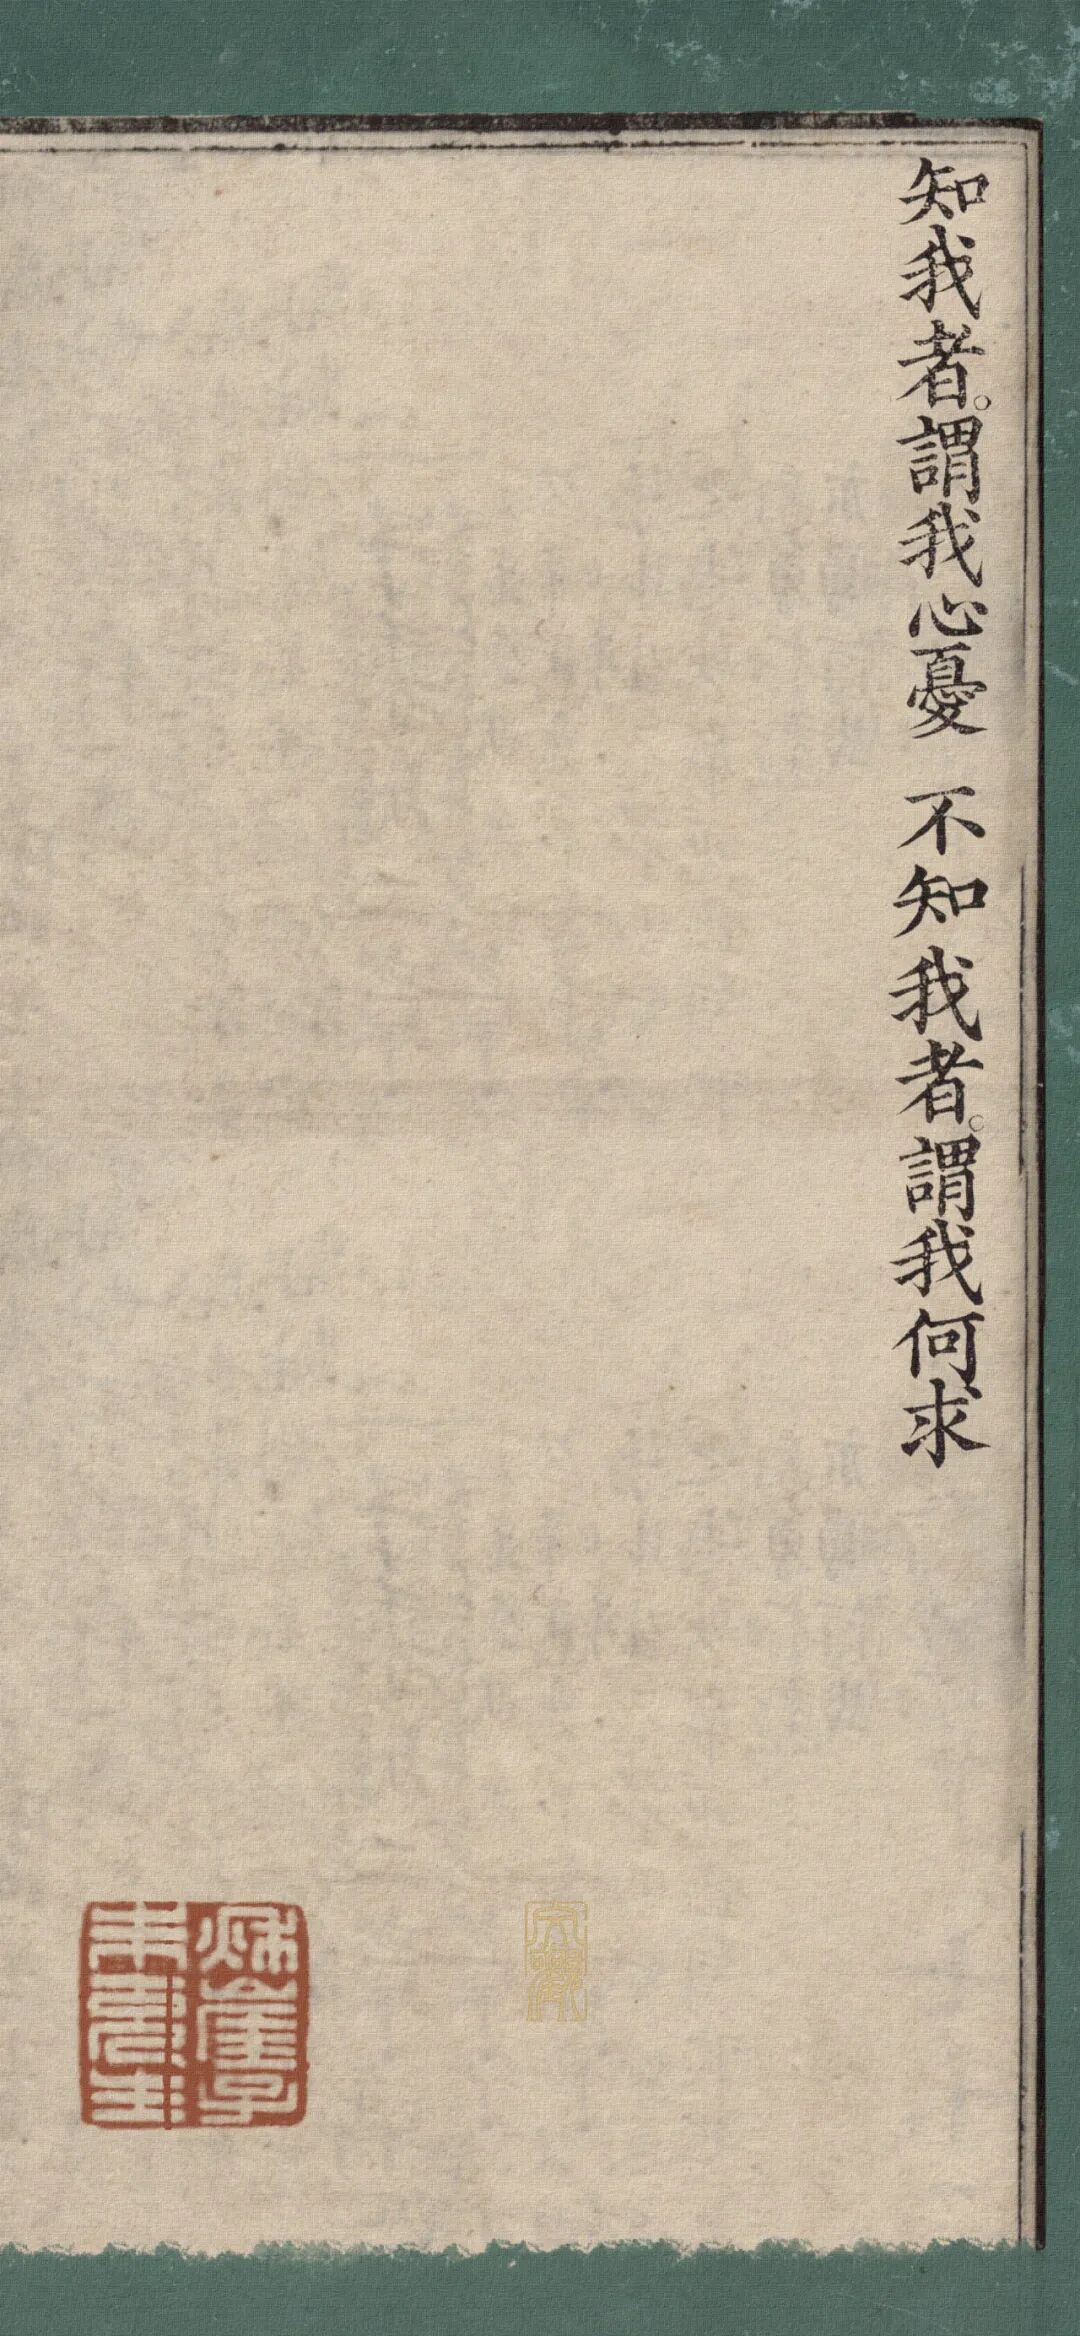 知我者。謂我心憂 不知我者。謂我何求